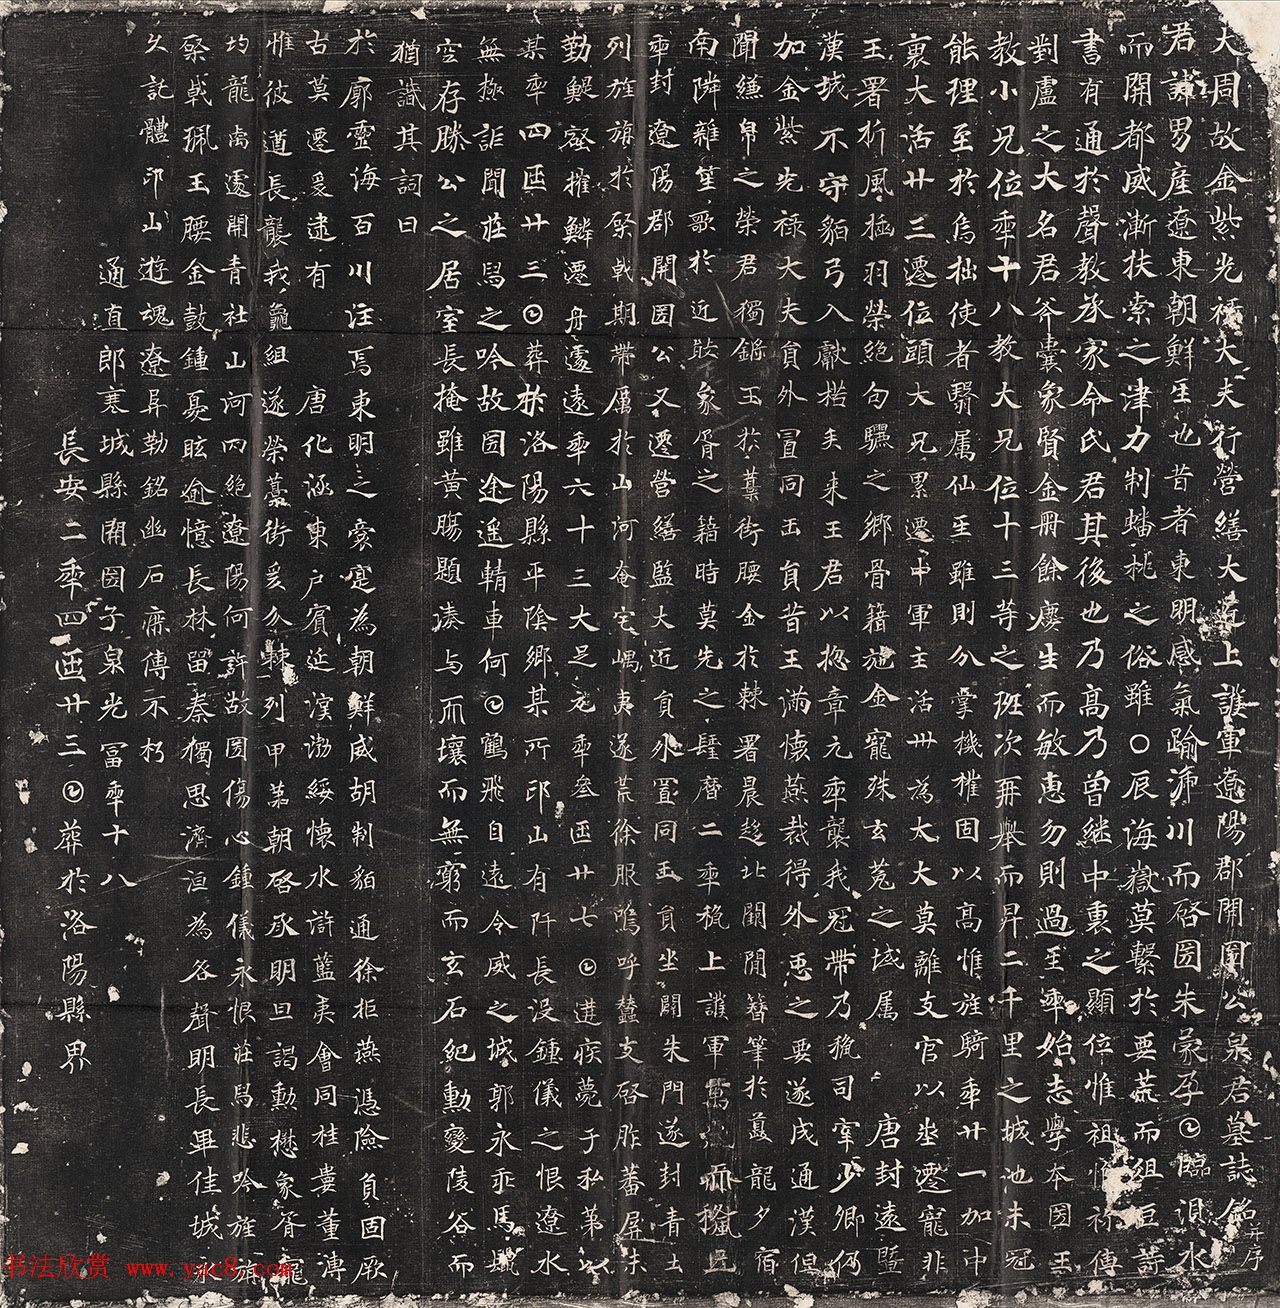 大周故金紫光禄大夫行營繕大匠上護軍遼陽郡開圀公泉君墓誌銘并序
君諱男産遼東朝鮮𤯔也昔者東明感氣踰㴲川而啓圀朱蒙孕𡆠臨浿水
而開都威漸扶索之津力制蟠桃之俗雖〇辰海嶽莫繫於要荒而俎豆詩
書有通於聲教承家命氏君其後也乃高乃曾繼中裏之顯位惟祖惟祢傳
對盧之大名君斧囊象賢金冊餘慶生而敏惠勿則過𤯔𠡦始志學本圀王
教小兄位𠡦十八教大兄位十三等之班次再舉而昇二千里之城池未冠
能理至於烏拙使者翳属仙𤯔雖則分掌機權固以高惟旌騎𠡦廿一加中
裏大活廿三遷位頭大兄累遷中軍主活卅為太大莫離支官以坐遷寵非
王署折風插羽榮絶句驪之鄉骨籍施金寵殊玄菟之域属 唐封遠暨
漢城不守貊弓入獻楛矢来王君以揔章元𠡦襲我冠帶乃授司宰少卿仍
加金紫光禄大夫員外置同𠙺員昔王滿懷燕裁得外𢘑之要遂成通漢但
聞縑帛之榮君獨鏘玉於藁街腰金於棘署晨趍北闕閒簪筆於夔龍夕宿
南隣雜笙歌於近翫象胥之籍時莫先之聖曆二𠡦授上護軍萬歲天授三
𠡦封遼陽郡開圀公又遷營繕監大匠員外置同𠙺員坐闢朱門遂封青土
列旌旆於棨戟期帶厲於山河奄宅嵎夷遂荒徐服嗚呼蠢支啓胙蕃屏未
勤鯷壑摧鱗遷舟遽遠𠡦六十三大足元𠡦叁𠥱廿七𡆠遘疾薨于私第以
某𠡦四𠥱廿三𡆠葬於洛陽縣平陰鄉某所邙山有阡長没鍾儀之恨遼水
無極詎聞莊舄之吟故圀途遥輤車何𡆠鶴飛自遠令威之城郭永乖馬鬣
空存滕公之居室長掩雖黄腸題湊与𠀑壤而無窮而玄石紀勳變陵谷而
猶識其詞曰
於廓靈海百川注焉東明之裔寔為朝鮮威胡制貊通徐拒燕憑險負固厥
古莫遷爰逮有 唐化涵東户賓延溟渤綏懷水滸藍夷會同桂婁董溥
惟彼遒長襲我龜組遂榮藁街爰分棘列甲第朝啓承明旦謁勳懋象胥寵
均龍卨遽開青社山河冈絶遼陽何許故圀傷心鍾儀永恨莊舄悲吟旌
棨戟珮玉腰金鼓鍾憂眩逾憶長林留秦獨思濟洹為咎聲明長畢佳城
久託體邙山遊魂遼勒銘幽石庶傳不朽
通直郎襄城縣開圀子泉光富𠡦十八
長安二𠡦四𠥱廿三𡆠葬於洛陽縣界
书法欣赏 www.yac8.com